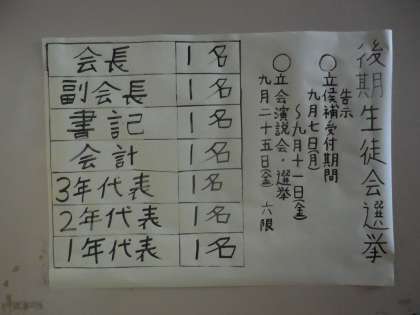 後期生徒会選挙
告示
○立候補受付期間
九月七日(月)
〜九月十一日(金)
○立会演説会・選挙
九月二十五日(金) 六限
会長 1名
副会長 1名
書記 1名
会計 1名
3年代表 1名
2年代表 1名
1年代表 1名